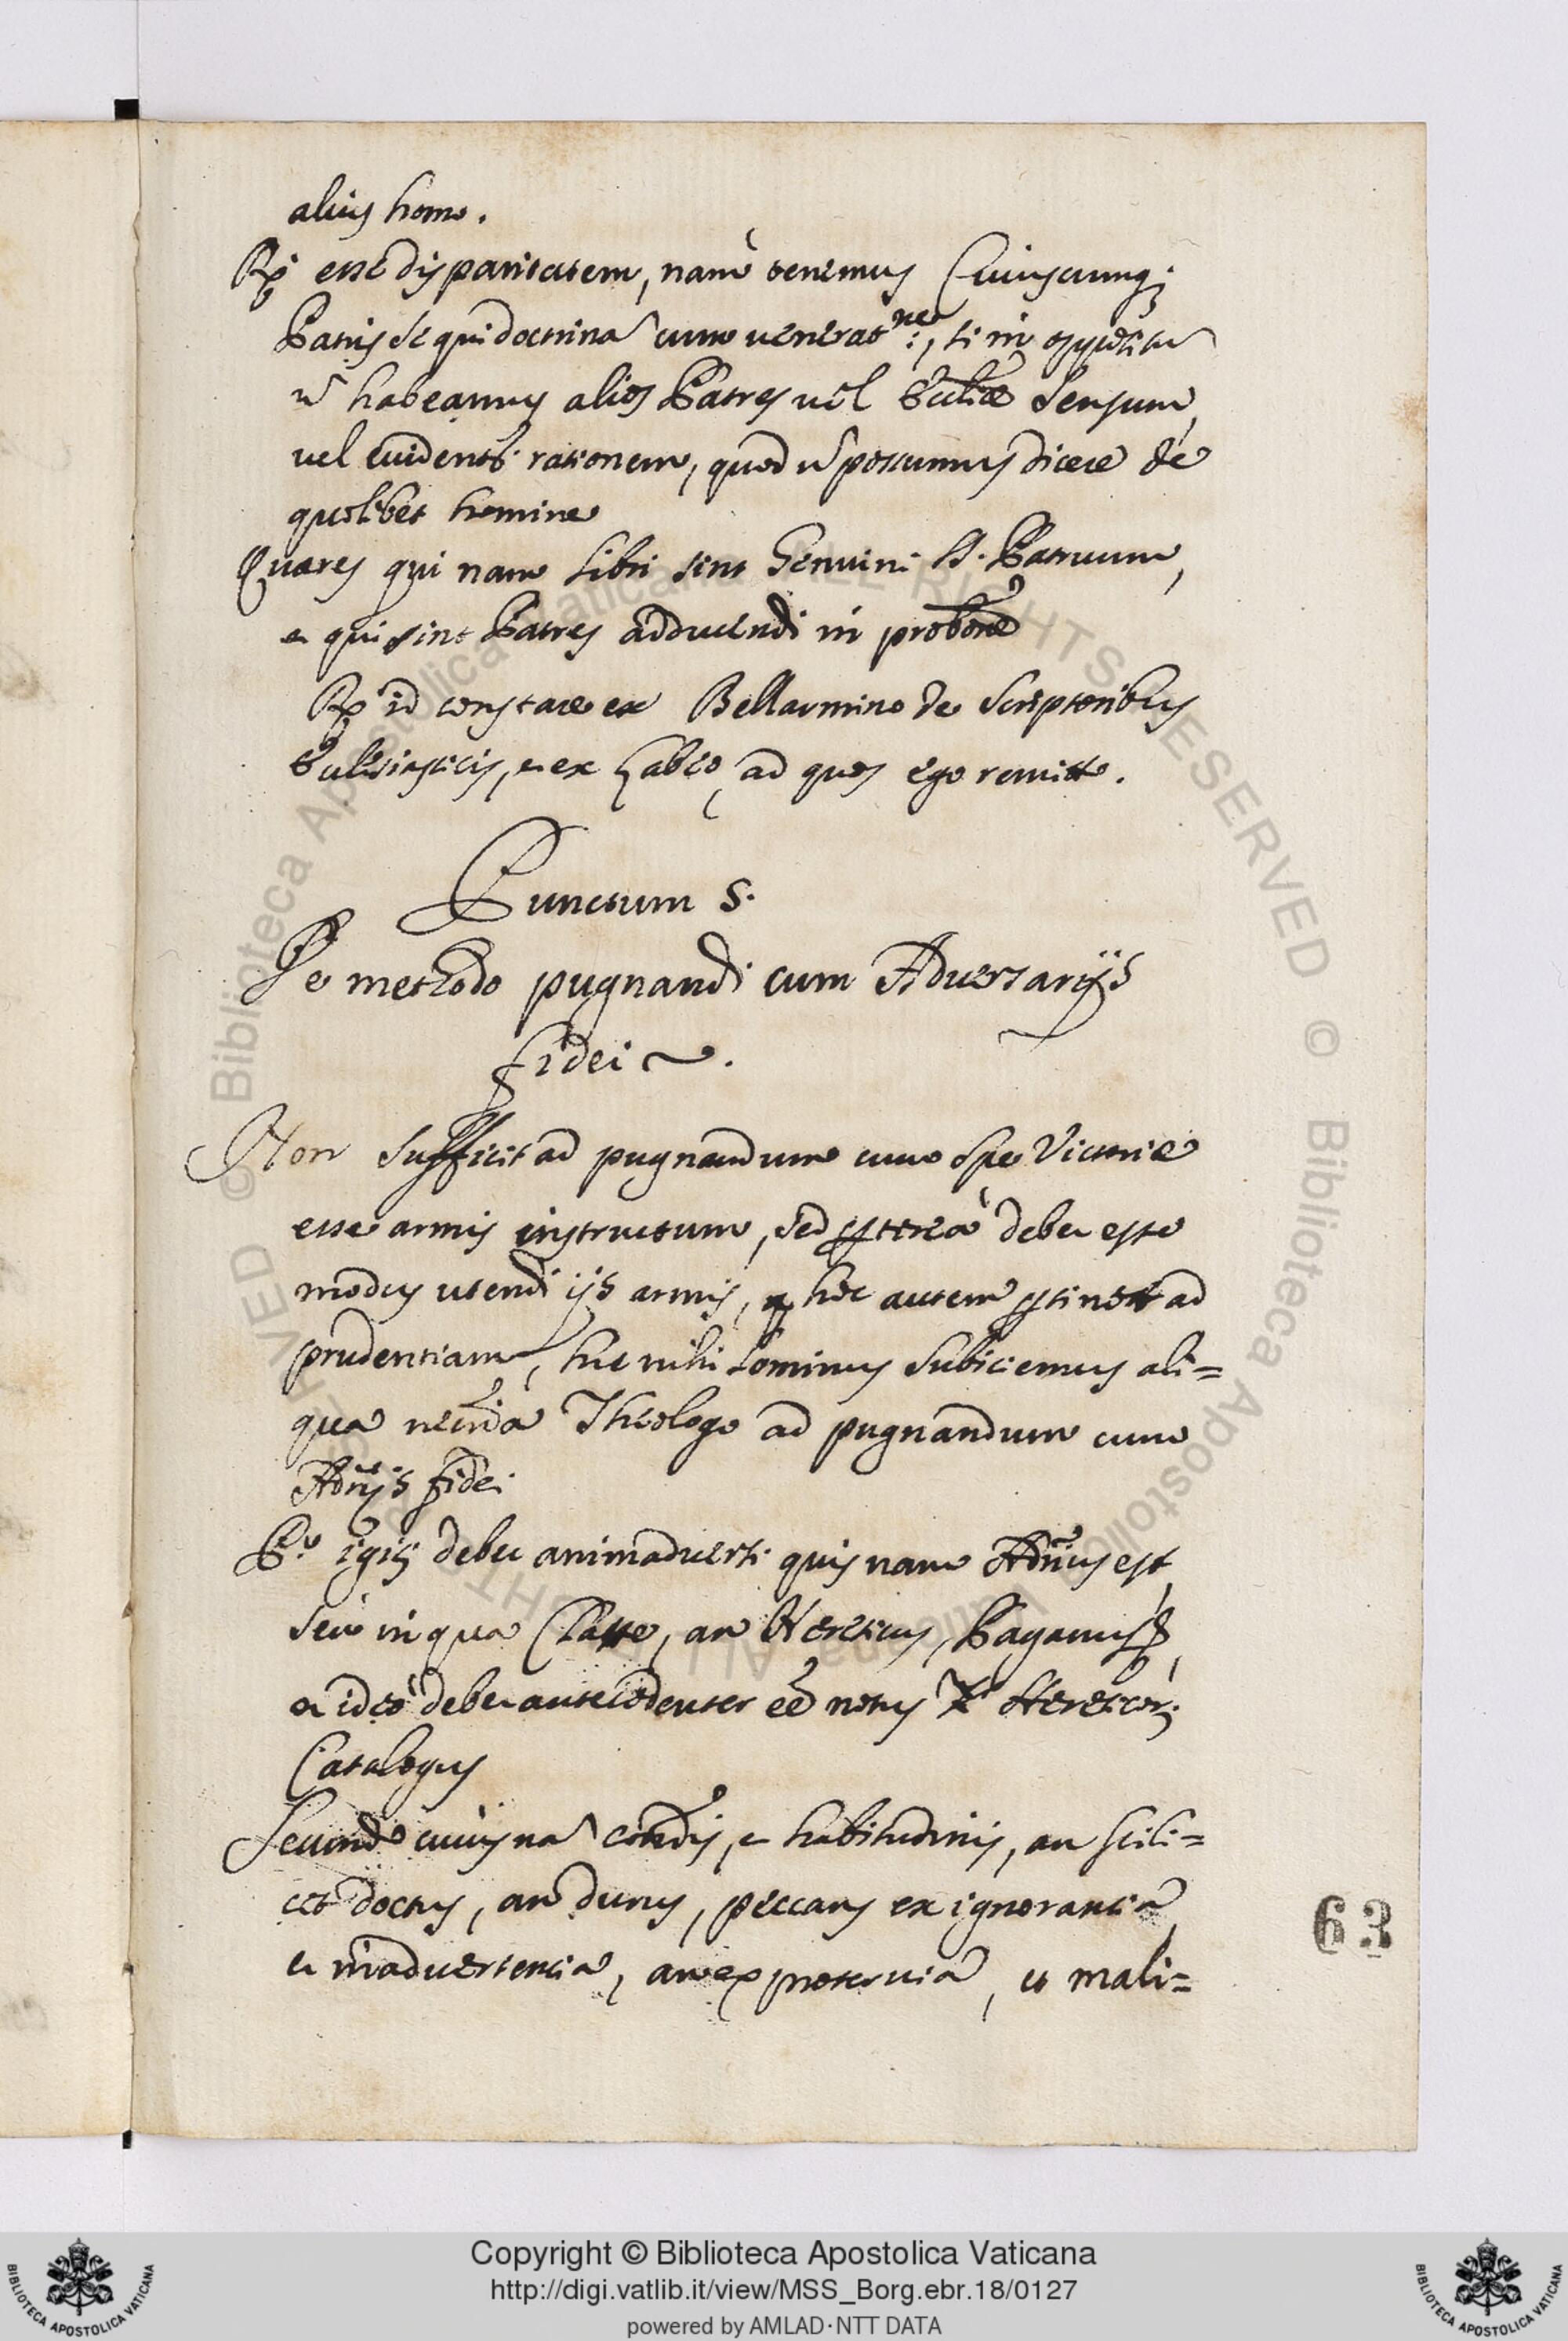 alius homo.
Rx esse disparitatem, nam tenemur Cuiuscunq;
Patris sequi doctrinã cum venerat:ne, si in oppositũ
nõ habeamus alios Patres vel Ecclĩæ Sensum,
vel evidentẽ rationem, quod nõ possumus dicere de
quolibet homine
Quæres qui nam libri sint Genuini SS. Patruum,
et qui sint Patres adducendi in probõne
Rx id constare ex Bellarmino de Scriptoribus
Ecclesiasticis, et ex ad quos ego remitto.
Punctum 5.
De methodo pugnandi cum Adversarijs
fidei
Non Sufficit ad pugnandum cum Spe Victoriæ
esse armis instructum, sed pptereà debet esse
modus utendi ijs armis, hoc autem ptinet ad
prudentiam, Subiciemus ali=
qua necĩa Theologo ad pugnandum cum
Adrijs fidei
Pº igit debet animadverti quis nam Adrius est,
seu in qua Classe, an Hereticus, Paganus,
et ideò debet antecedenter eẽ notus Hereticor;
Catalogus
Secundo cuiusnã condis, et habitudinis, an scili=
cet doctus, an durus, peccans ex ignorantiã,
et inadvertentiã, an ex proterviã, et mali=
63
Copyright © Biblioteca Apostolica Vaticana
http://digi.vatlib.it/view/MSS_Borg.ebr.18/0127
powered by AMLAD·NTT DATA
BIBLIOTECA APOSTOLICA VATICANA
BIBLIOTECA APOSTOLICA VATICANA